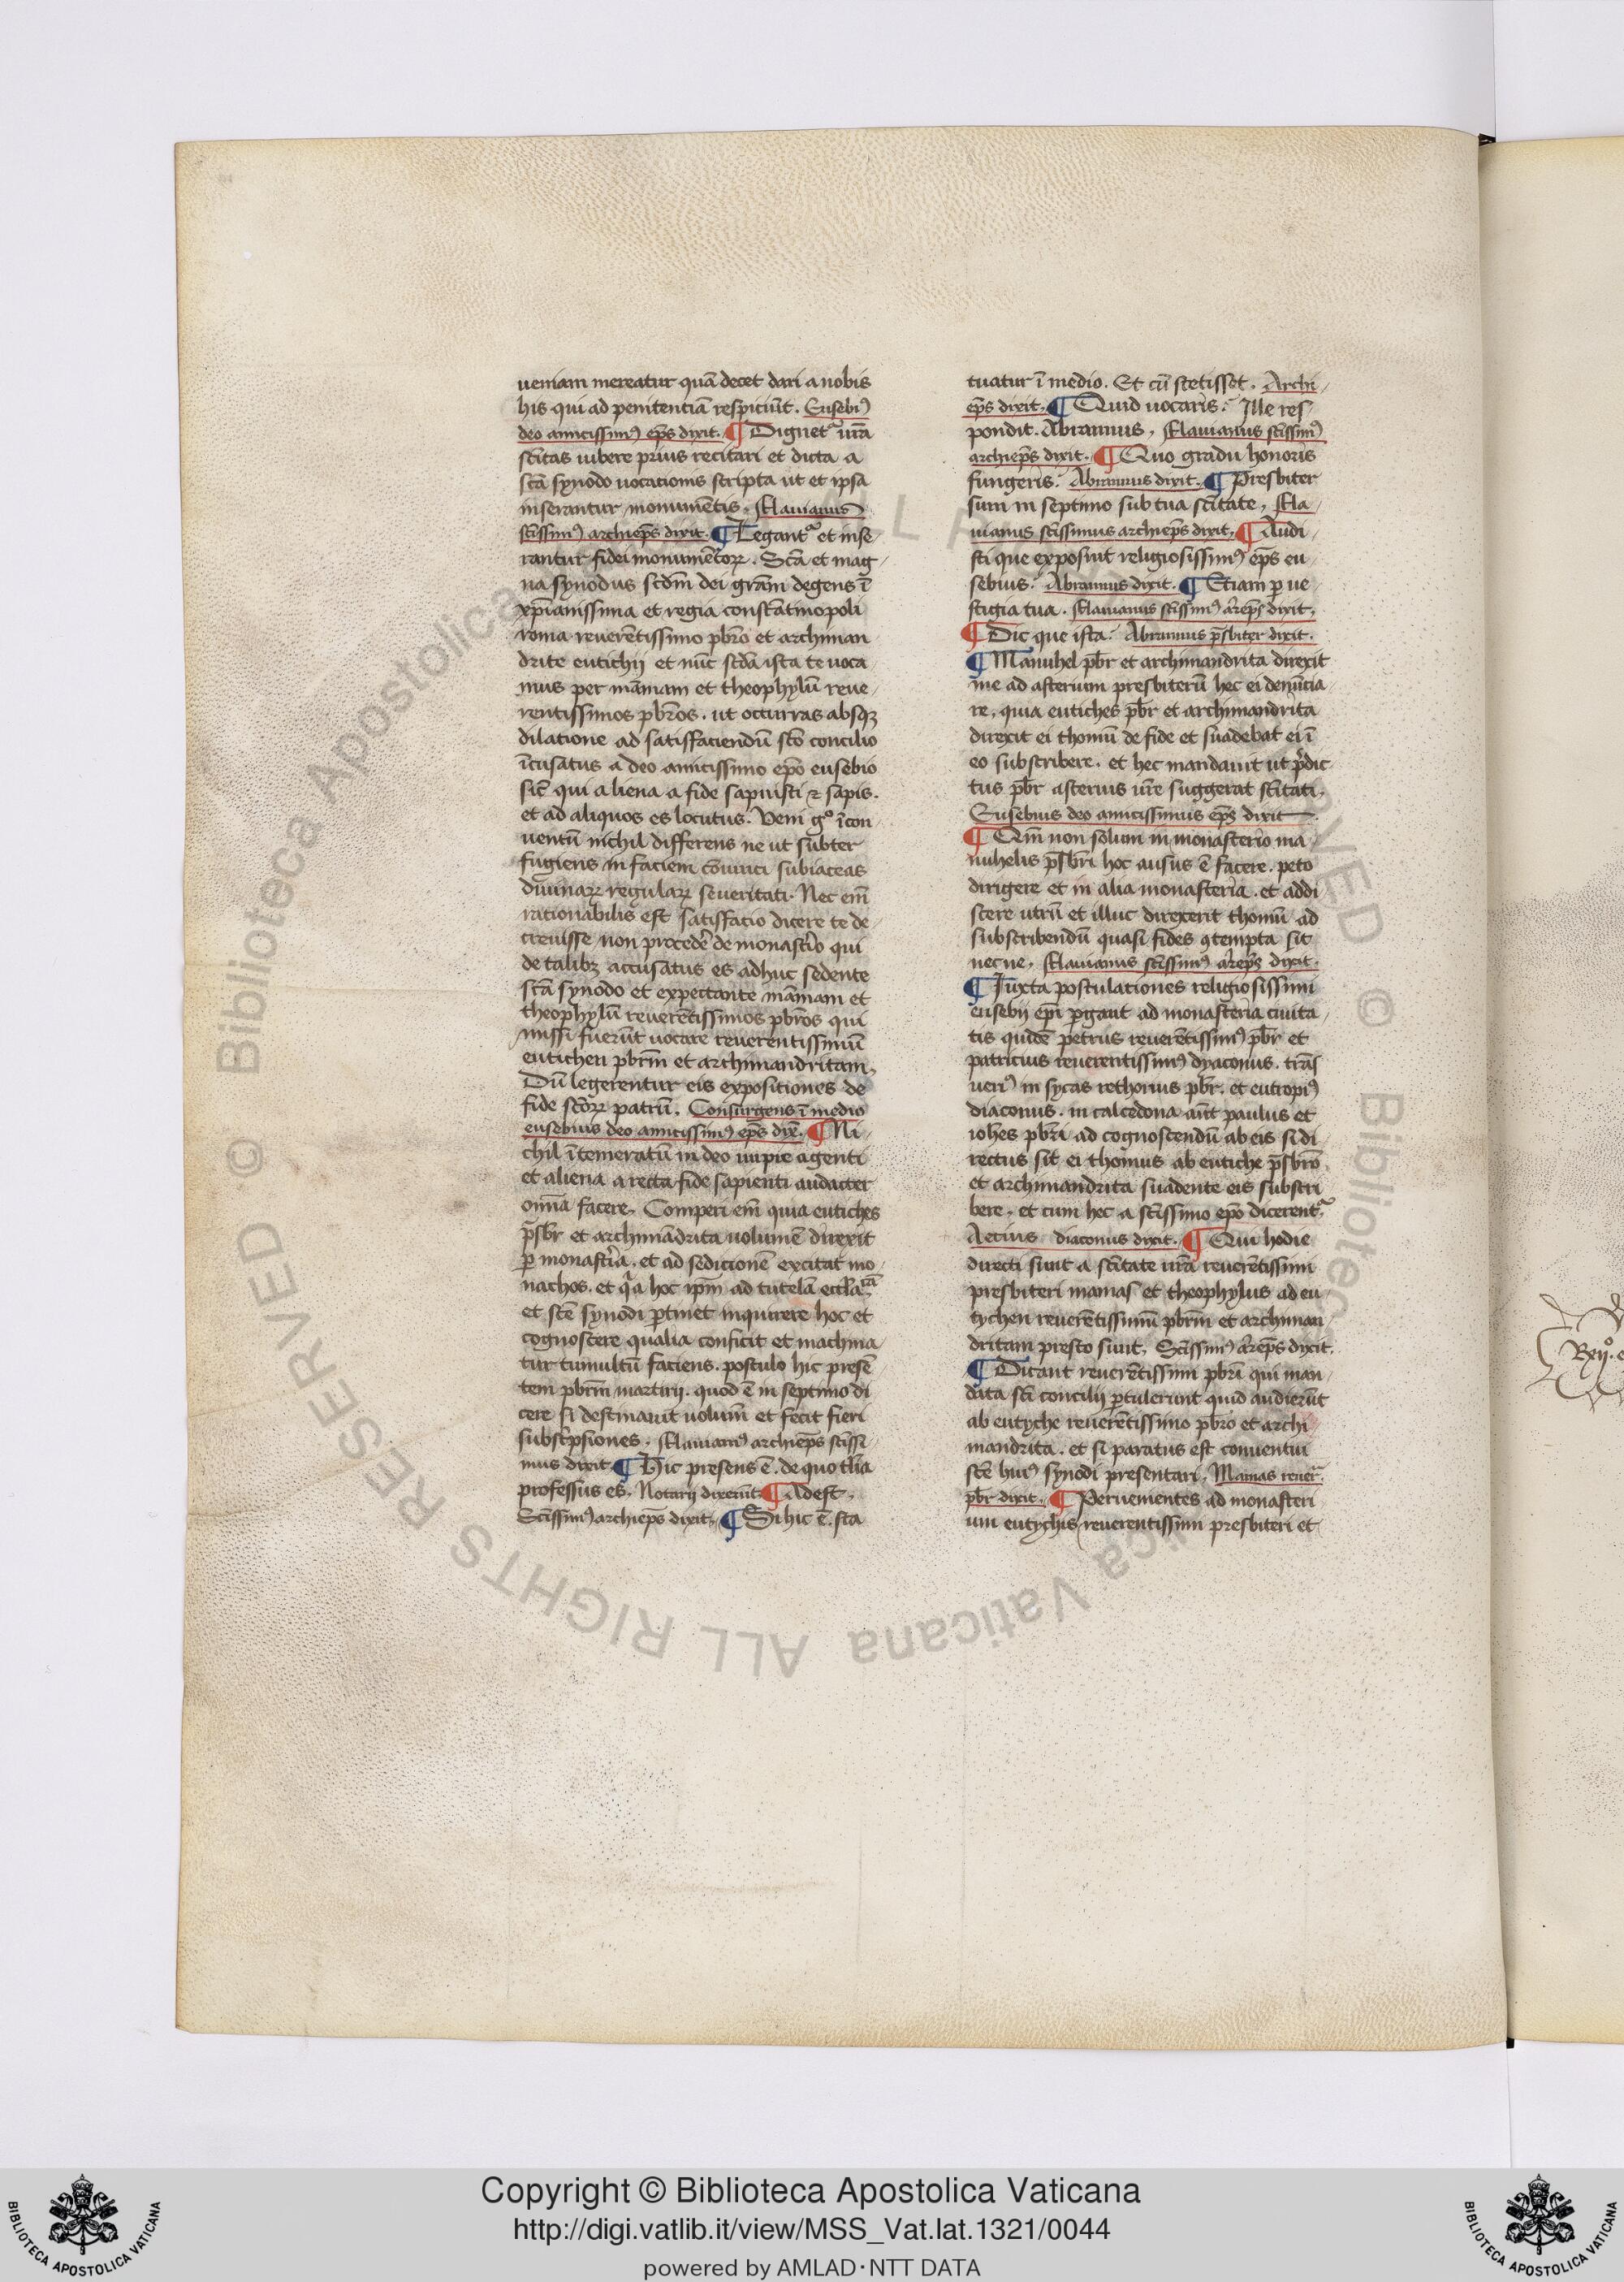 ueniam mereatur quā decet dari a nobis
his qui ad penitenciā respiciūt. Eusebiꝰ
deo amicissimꝰ ep̄s dixit. ¶ Dignetᷣ ur̄a
sc̄itas iubere prius recitari et dicta a
sc̄a synodo uocationis scripta ut et ipsa
inserantur monumētis. Flauianus
sc̄issimꝰ archiep̄s dixit. ¶ Legantᷣ et inse
rantur fidei monumētoꝝ. Sc̄a et mag
na synodus scd̄m dei gr̄am degens ī
xp̄ianissima et regia constātinopoli
roma reuerētissimo pb̄ro et archiman
drite eutichij et nūc scd̄a ista te uoca
mus per māmam et theophylū reue
rentissimos pb̄ros. ut occurras absqꝫ
dilatione ad satisfaciendū sc̄o concilio
īcusatus a deo amicissimo ep̄o eusebio
sic̄ qui aliena a fide sapuisti ⁊ sapis.
et ad aliquos es locutus. Veni gͦ īcon
uentū nichil differens ne ut subter
fugiens in faciem cōuinci subiaceas
diuinaꝝ regulaꝝ seueritati. Nec em̄
rationabilis est satisfacio dicere te de
creuisse non procedere de monasterio qui
de talibꝫ accusatus es adhuc sedente
sc̄a synodo et expectante māmam et
theophylū reuerētissimos pb̄ros qui
missi fuerūt uocare reuerentissimū
eutichen pb̄rm et archimandritam.
Dū legerentur eis expositiones de
fide sc̄oꝝ patrū. Consurgens ī medio
eusebius deo amicissimꝰ ep̄s dix̄. ¶ Ni
chil ītemeratū in deo impie agenti
et aliena a recta fide sapienti audacter
om̄ia facere. Comperi em̄ quia eutiches
p̄sbr et archimādrita uolumē direxit
ꝑ monasteria. et ad sedicionē excitat mo
nachos. et qͣa hoc ip̄m ad tutelā eccl̄iaꝝ
et sc̄e synodi ꝑtinet inquirere hoc et
cognoscere qualia conficit et machina
tur tumultū faciens. postulo hic presē
tem pb̄rm martirij. quod ē in septimo di
cere si destinauit uolum̄ et fecit fieri
subscͥpsiones. Flauianꝰ archiep̄s sc̄issi
mus dixit ¶ Hic presens ē. de quo tl̄ia
professus es. Notarij dixerūt ¶ Adest.
Sc̄issimꝰ archiep̄s dixit. ¶ Si hic ē. sta
tuatur ī medio. Et cū stetisset. Archi
ep̄s dixit. ¶ Quid uocaris. Ille res
pondit. Abramius. Flauianus sc̄issimꝰ
archiep̄s dixit. ¶ Quo gradu honoris
fungeris. Abramius dixit. ¶ Presbiter
sum in septimo sub tua sc̄itate. Fla
uianus sc̄issimus archiep̄s dixit. ¶ Audi
sti que exposuit religiosissimꝰ ep̄s eu
sebius. Abramius dixit. ¶ Etiam ꝑ ue
stigia tua. Flauianus sc̄issimꝰ ar̄ep̄s dixit.
¶ Dic que ista. Abramius p̄sbiter dixit.
¶ Manuhel pb̄r et archimandrita direxit
me ad asterium presbiterū hec ei denūcia
re. quia eutiches pb̄r et archimandrita
direxit ei thomū de fide et suadebat ei ī
eo subscribere. et hec mandauit ut p̄dic
tus pb̄r asterius ur̄e suggerat sc̄itati.
Eusebius deo amicissimus ep̄s dixit
¶ Qm̄ non solum in monasterio ma
nuhelis p̄sbri hoc ausus ē facere. peto
dirigere et in alia monasteria. et addi
scere utrū et illuc direxerit thomū ad
subscribendū quasi fides ꝯtempta sit
necne. Flauianus sc̄issimꝰ ar̄ep̄s dixit.
¶ Iuxta postulationes religiosissimi
eusebij ep̄i ꝑgant ad monasteria ciuita
tis quidē petrus reuerētissimꝰ pb̄r et
patricius reuerentissimꝰ dyaconus. trās
uerꝰ in sycas rethorius pb̄r. et eutropiꝰ
diaconus. in calcedona aūt paulus et
ioh̄es pb̄ri ad cognoscendū ab eis si di
rectus sit ei thomus ab eutiche p̄sbro
et archimandrita suadente eis subscri
bere. et cum hec a sc̄issimo ep̄o dicerentᷣ
Aecius diaconus dixit. ¶ Qui hodie
directi sunt a sc̄itate ur̄a reuerētissimi
presbiteri mamas et theophylus ad eu
tychen reuerētissimū pb̄rm et archiman
dritam presto sunt. Sc̄issimꝰ ar̄ep̄s dixit.
¶ Dicant reuerētissimi pb̄ri qui man
data sc̄i concilij ꝑtulerunt quid audierūt
ab eutyche reuerētissimo pb̄ro et archi
mandrita. et si paratus est conuentui
sc̄e huiꝰ synodi presentari. Mamas reuer̄.
pb̄r dixit. ¶ Peruenientes ad monasteri
um eutychis reuerentissimi presbiteri et
Copyright © Biblioteca Apostolica Vaticana
http://digi.vatlib.it/view/MSS_Vat.lat.1321/0044
powered by AMLAD·NTT DATA
BIBLIOTECA APOSTOLICA VATICANA
BIBLIOTECA APOSTOLICA VATICANA